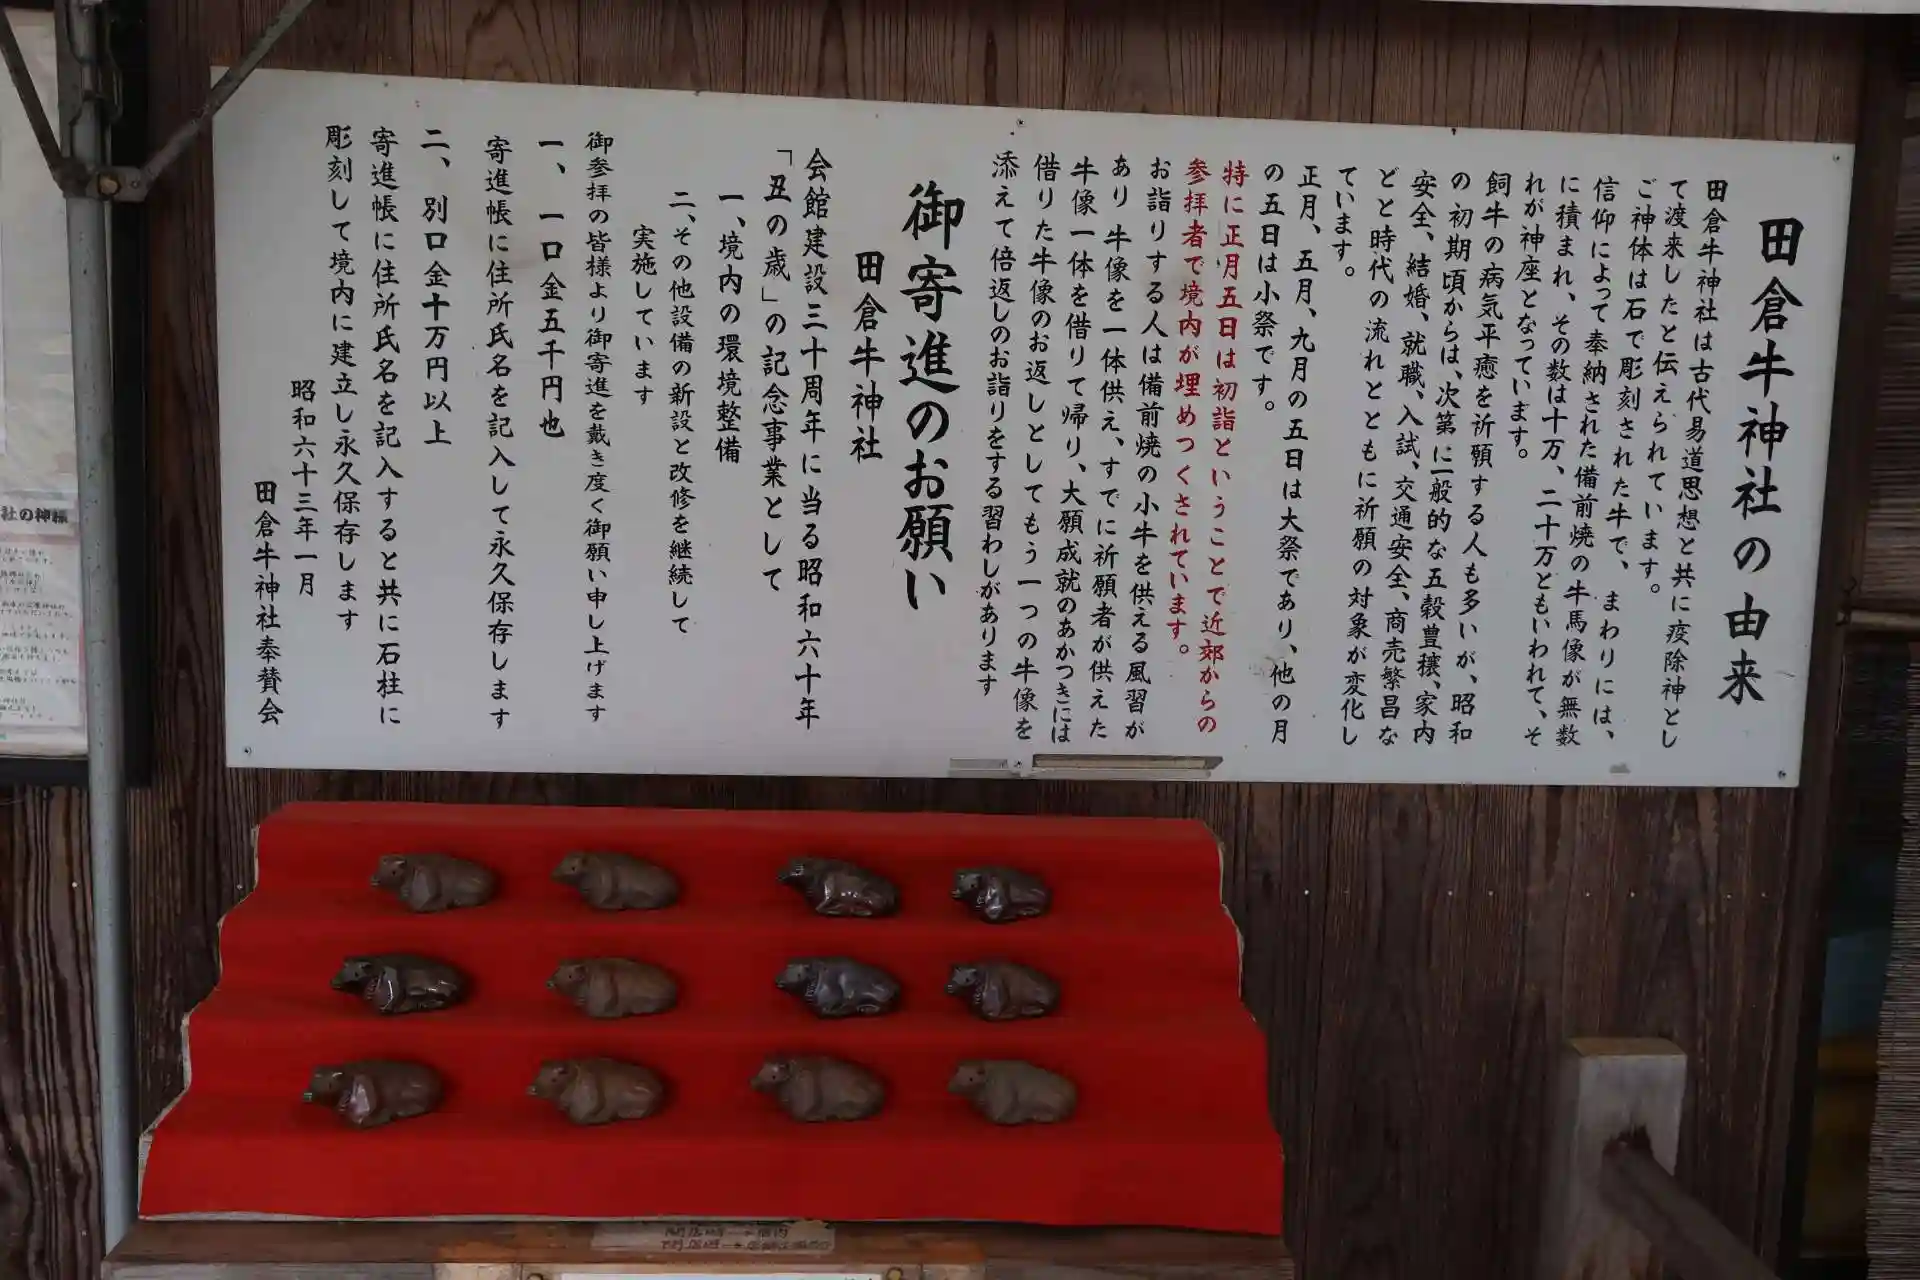 田倉牛神社の由来
田倉牛神社は古代易道思想と共に疫除神とし
て渡来したと伝えられています。
ご神体は石で彫刻された牛で、まわりには、
信仰によって奉納された備前焼の牛馬像が無数
に積まれ、その数は十万、二十万ともいわれて、そ
れが神座となっています。
飼牛の病気平癒を祈願する人も多いが、昭和
の初期頃からは、次第に一般的な五穀豊穣、家内
安全、結婚、就職、入試、交通安全、商売繁昌な
どと時代の流れとともに祈願の対象が変化し
ています。
正月、五月、九月の五日は大祭であり、他の月
の五日は小祭です。
特に正月五日は初詣ということで近郊からの
参拝者で境内が埋めつくされています。
お詣りする人は備前焼の小牛を供える風習が
あり 牛像を一体供え、すでに祈願者が供えた
牛像一体を借りて帰り、大願成就のあかつきには
借りた牛像のお返しとしてもう一つの牛像を
添えて倍返しのお詣りをする習わしがあります
御寄進のお願い
田倉牛神社
会館建設三十周年に当る昭和六十年
「丑の歳」の記念事業として
一、境内の環境整備
二、その他設備の新設と改修を継続して
実施しています
御参拝の皆様より御寄進を戴き度く御願い申し上げます
一、一口金五千円也
寄進帳に住所氏名を記入して永久保存します
二、別口金十万円以上
寄進帳に住所氏名を記入すると共に石柱に
彫刻して境内に建立し永久保存します
昭和六十三年一月
田倉牛神社奉賛会
社の神様